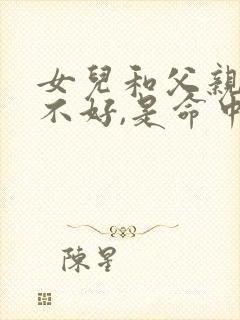 女兒和父親
不好,是命中
陳星